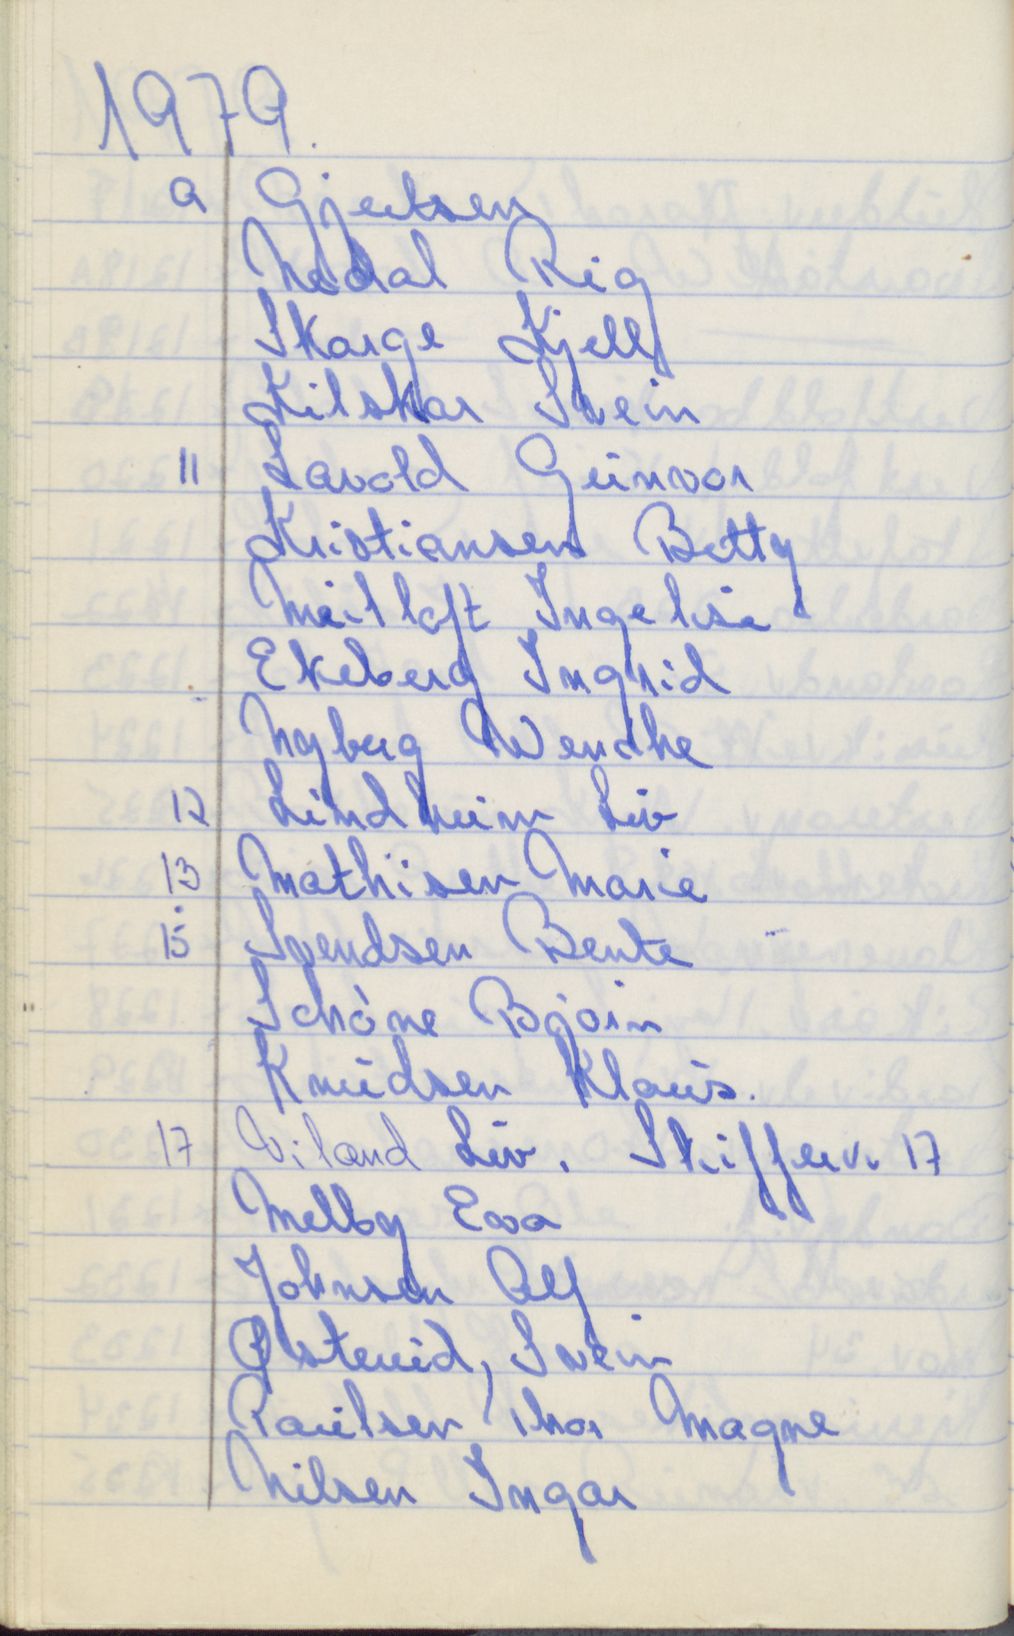 1979.
9 Gjertsen
Nedal Rig
Skarge Kjell
Kilskar Svein
11 Lavold Gunvor
Kristiansen Betty
Meilloft Ingelise
Ekeberg Ingrid
Nyberg Wenche
12 Lindheim Liv
13 Mathisen Marie
15 Svendsen Bente
Schøne Bjørn
Knudsen Klaus.
17 Viland Liv. Skifferv. 17
Melby Eva
Johnsen Alf
Østereid, Svein
Paulsen Thor Magne
Nilsen Ingar